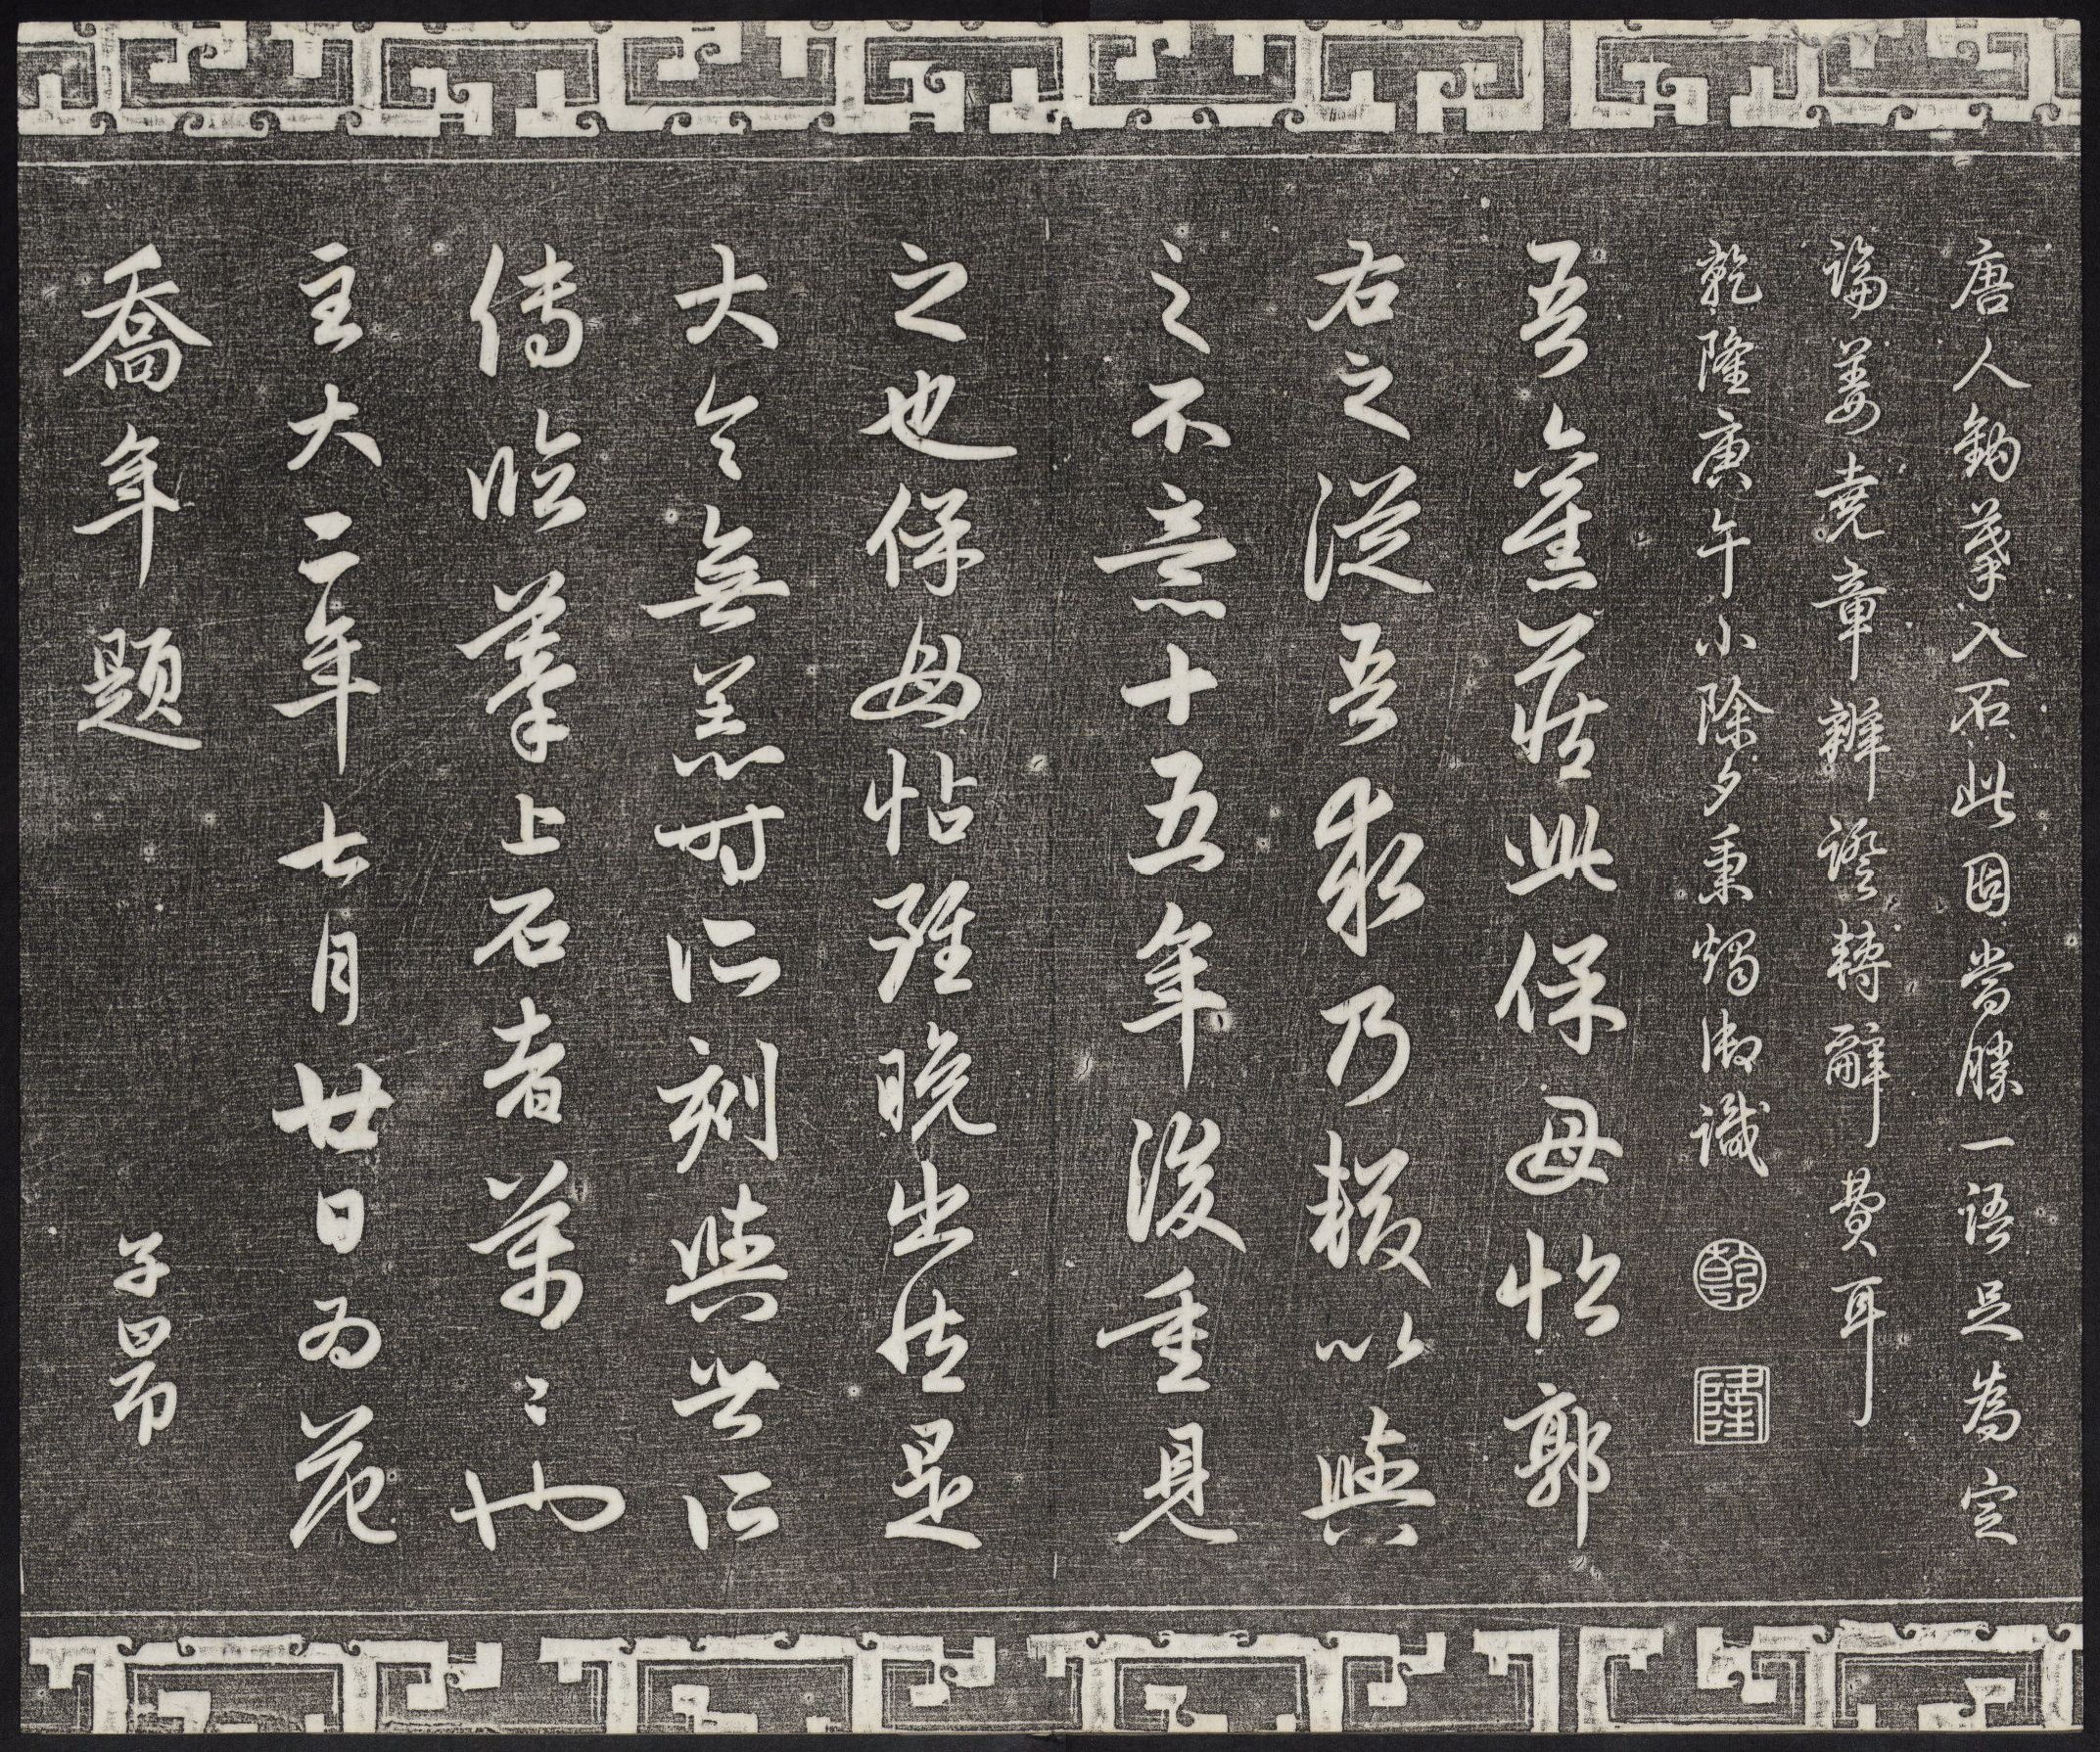 唐人鉤摹入石此固當勝一語足為定
論姜堯章辨證轉辭費耳
乾隆庚午小除夕秉燭御識 乾 隆
吾舊藏此保母帖郭
右之從吾求乃輟以與
之不意十五年後重見
之也保母帖雖晚出是
大令無恙時所刻與世所
傳臨摹上石者萬〻也
至大二年七月廿日為范
喬年題 子昂